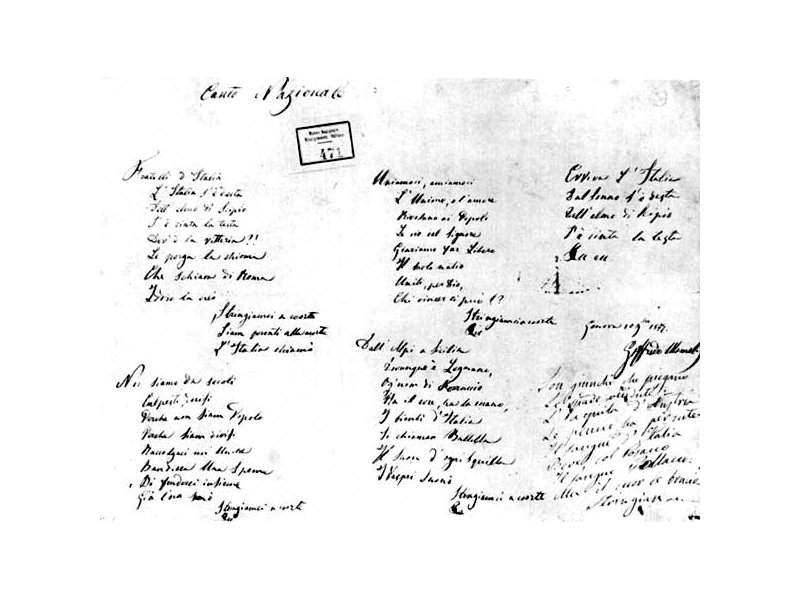 Canto Nazionale
Museo Nazionale
Risorgimento Italiano
471
Fratelli d'Italia
L'Italia s'è desta
Dell'elmo di Scipio
S'è cinta la testa
Dov'è la vittoria?!
Le porga la chioma
Che schiava di Roma
Iddio la creò
Stringiamci a coorte
Siam pronti alla morte
L'Italia chiamò
Noi siamo da secoli
Calpesti derisi
Perché non siam Popolo
Perché siam divisi
Raccolgaci un'Unica
Bandiera Una Speme
Di fonderci insieme
Già l'ora suonò
Stringiamci a coorte
Uniamoci, amiamoci
L'Unione, e l'amore
Rivelano ai Popoli
Le vie del Signore
Giuriamo far Libero
Il suolo natio
Uniti, per Dio,
Chi vincer ci può!?
Stringiamci a coorte
Dall'Alpi a Sicilia
Dovunque è Legnano,
Ogn'uom di Ferruccio
Ha il core, ha la mano,
I bimbi d'Italia
Si chiaman Balilla
Il Suon d'ogni Squilla
I Vespri Suonò
Stringiamci a coorte
Evviva l'Italia
Dal sonno s'è desta
Dell'elmo di Scipio
S'è cinta la testa
Genova
Goffredo Mameli
Son giunchi che piegano
Le spade vendute
L'Aquila d'Austria
Le penne ha perdute
Il sangue d'Italia
Bevé col Cosacco
Il sangue Polacco
Ma il cuor le bruciò
Stringiam